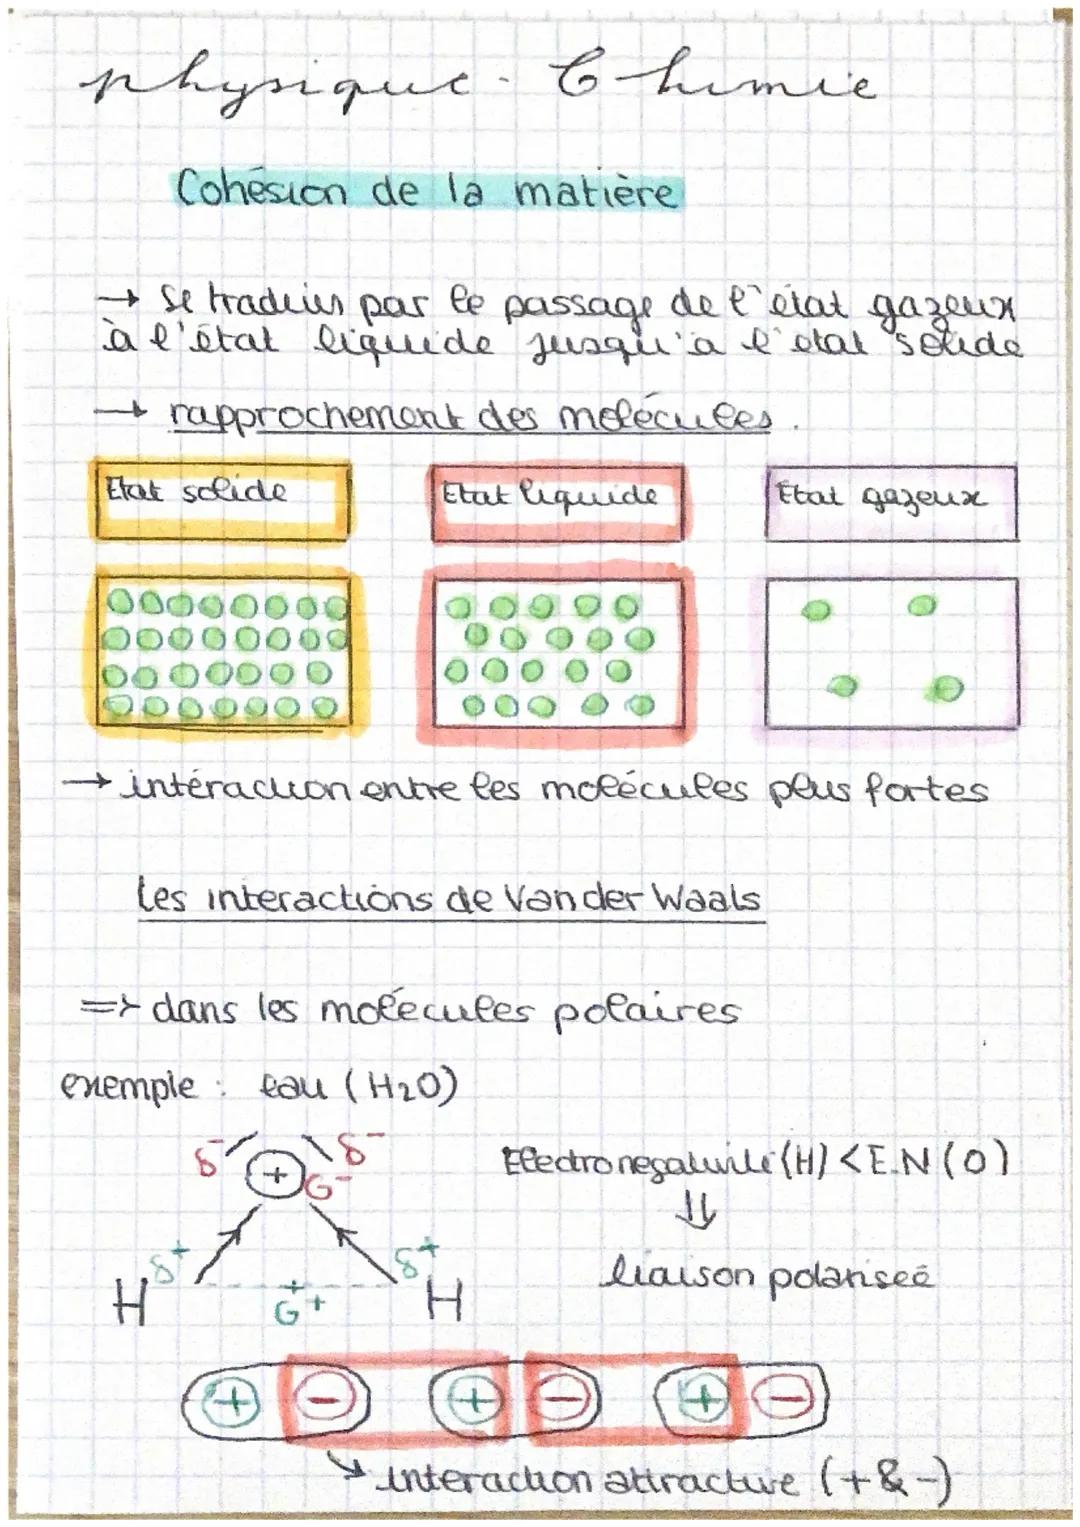 physique - Chimie
Cohésion de la matière
→ se traduis par le passage de l'état gazeux
à l'état liquide jusqu'à l'état solide
→ rapprochement des molécules.
Etat solide
Etat liquide
Etat gazeux
→ intéraction entre les molécules plus fortes
les interactions de Van der Waals
=> dans les molécules polaires
exemple : eau (H2O)
δ- δ-
+
G-
Electronegativité (H) < E.N (O)
⇓
δ+ δ+
liaison polarisée
H + H
G+
+ - + - + -
↘ interaction attractive (+ & -)